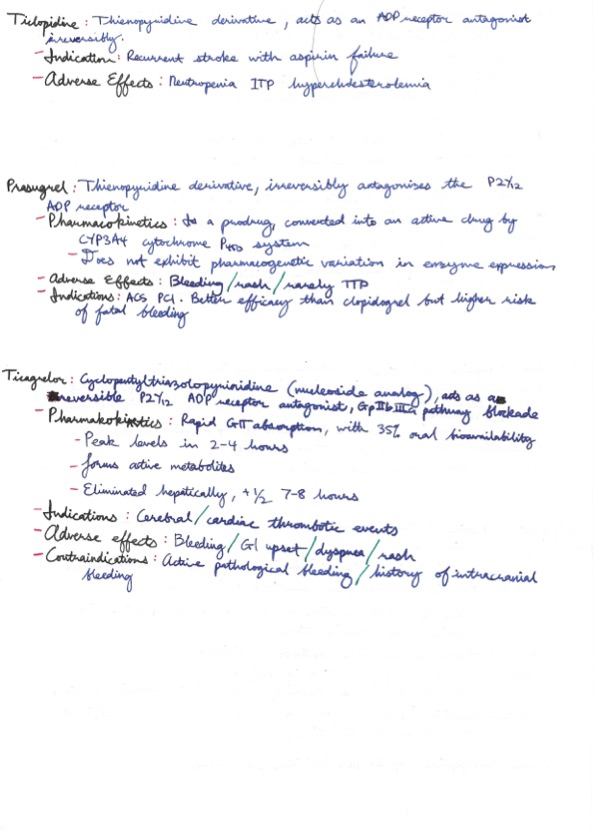 Ticlopidine : Thienopyridine derivative, acts as an ADP receptor antagonist
irreversibly.
- Indication : Recurrent stroke with aspirin failure
- Adverse Effects : Neutropenia ITP hypercholesterolemia
Prasugrel : Thienopyridine derivative, irreversibly antagonises the P2Y12
ADP receptor
- Pharmacokinetics : Is a prodrug, converted into an active drug by
CYP3A4 cytochrome P450 system
- Does not exhibit pharmacogenetic variation in enzyme expression
- Adverse Effects : Bleeding/rash/rarely TTP
- Indications : ACS PCI. Better efficacy than clopidogrel but higher risk
of fatal bleeding
Ticagrelor : Cyclopentyltriazolopyrimidine (nucleoside analog), acts as a
reversible P2Y12 ADP receptor antagonist, GpIIbIIIa pathway blockade
- Pharmakokinetics : Rapid GIT absorption, with 35% oral bioavailability
- Peak levels in 2-4 hours
- forms active metabolites
- Eliminated hepatically, t1/2 7-8 hours
- Indications : Cerebral/cardiac thrombotic events
- Adverse effects : Bleeding/GI upset/dyspnea/rash
- Contraindications : Active pathological bleeding/history of intracranial
bleeding